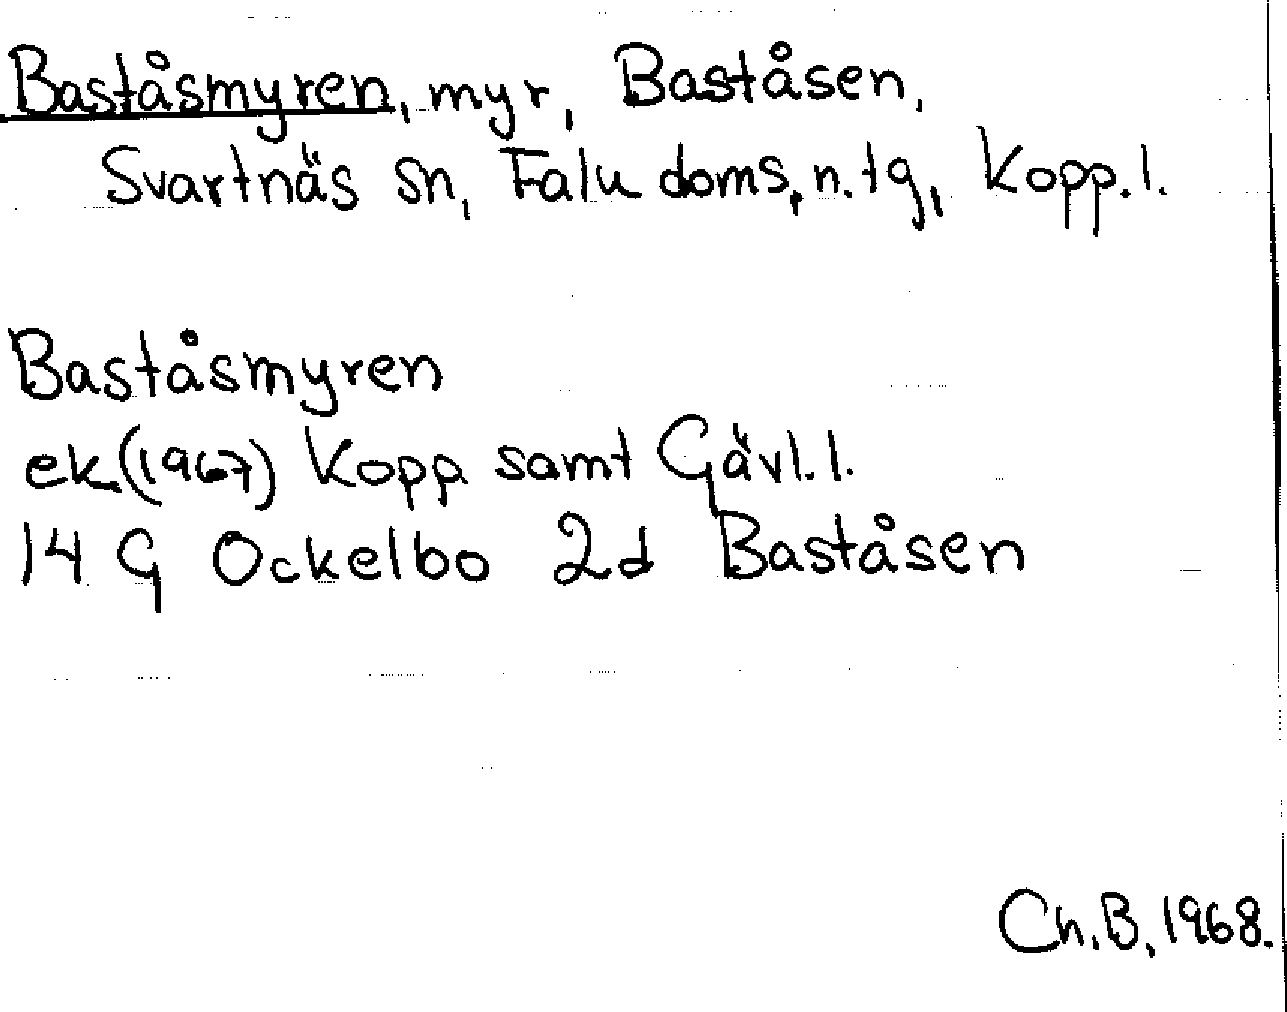 Baståsmyren, myr, Baståsen,
Svartnäs sn, Falu doms, n. tg, Kopp. l.
Baståsmyren
ek (1967) Kopp samt Gävl. l.
14 G Ockelbo 2d Baståsen
Ch. B, 1968.